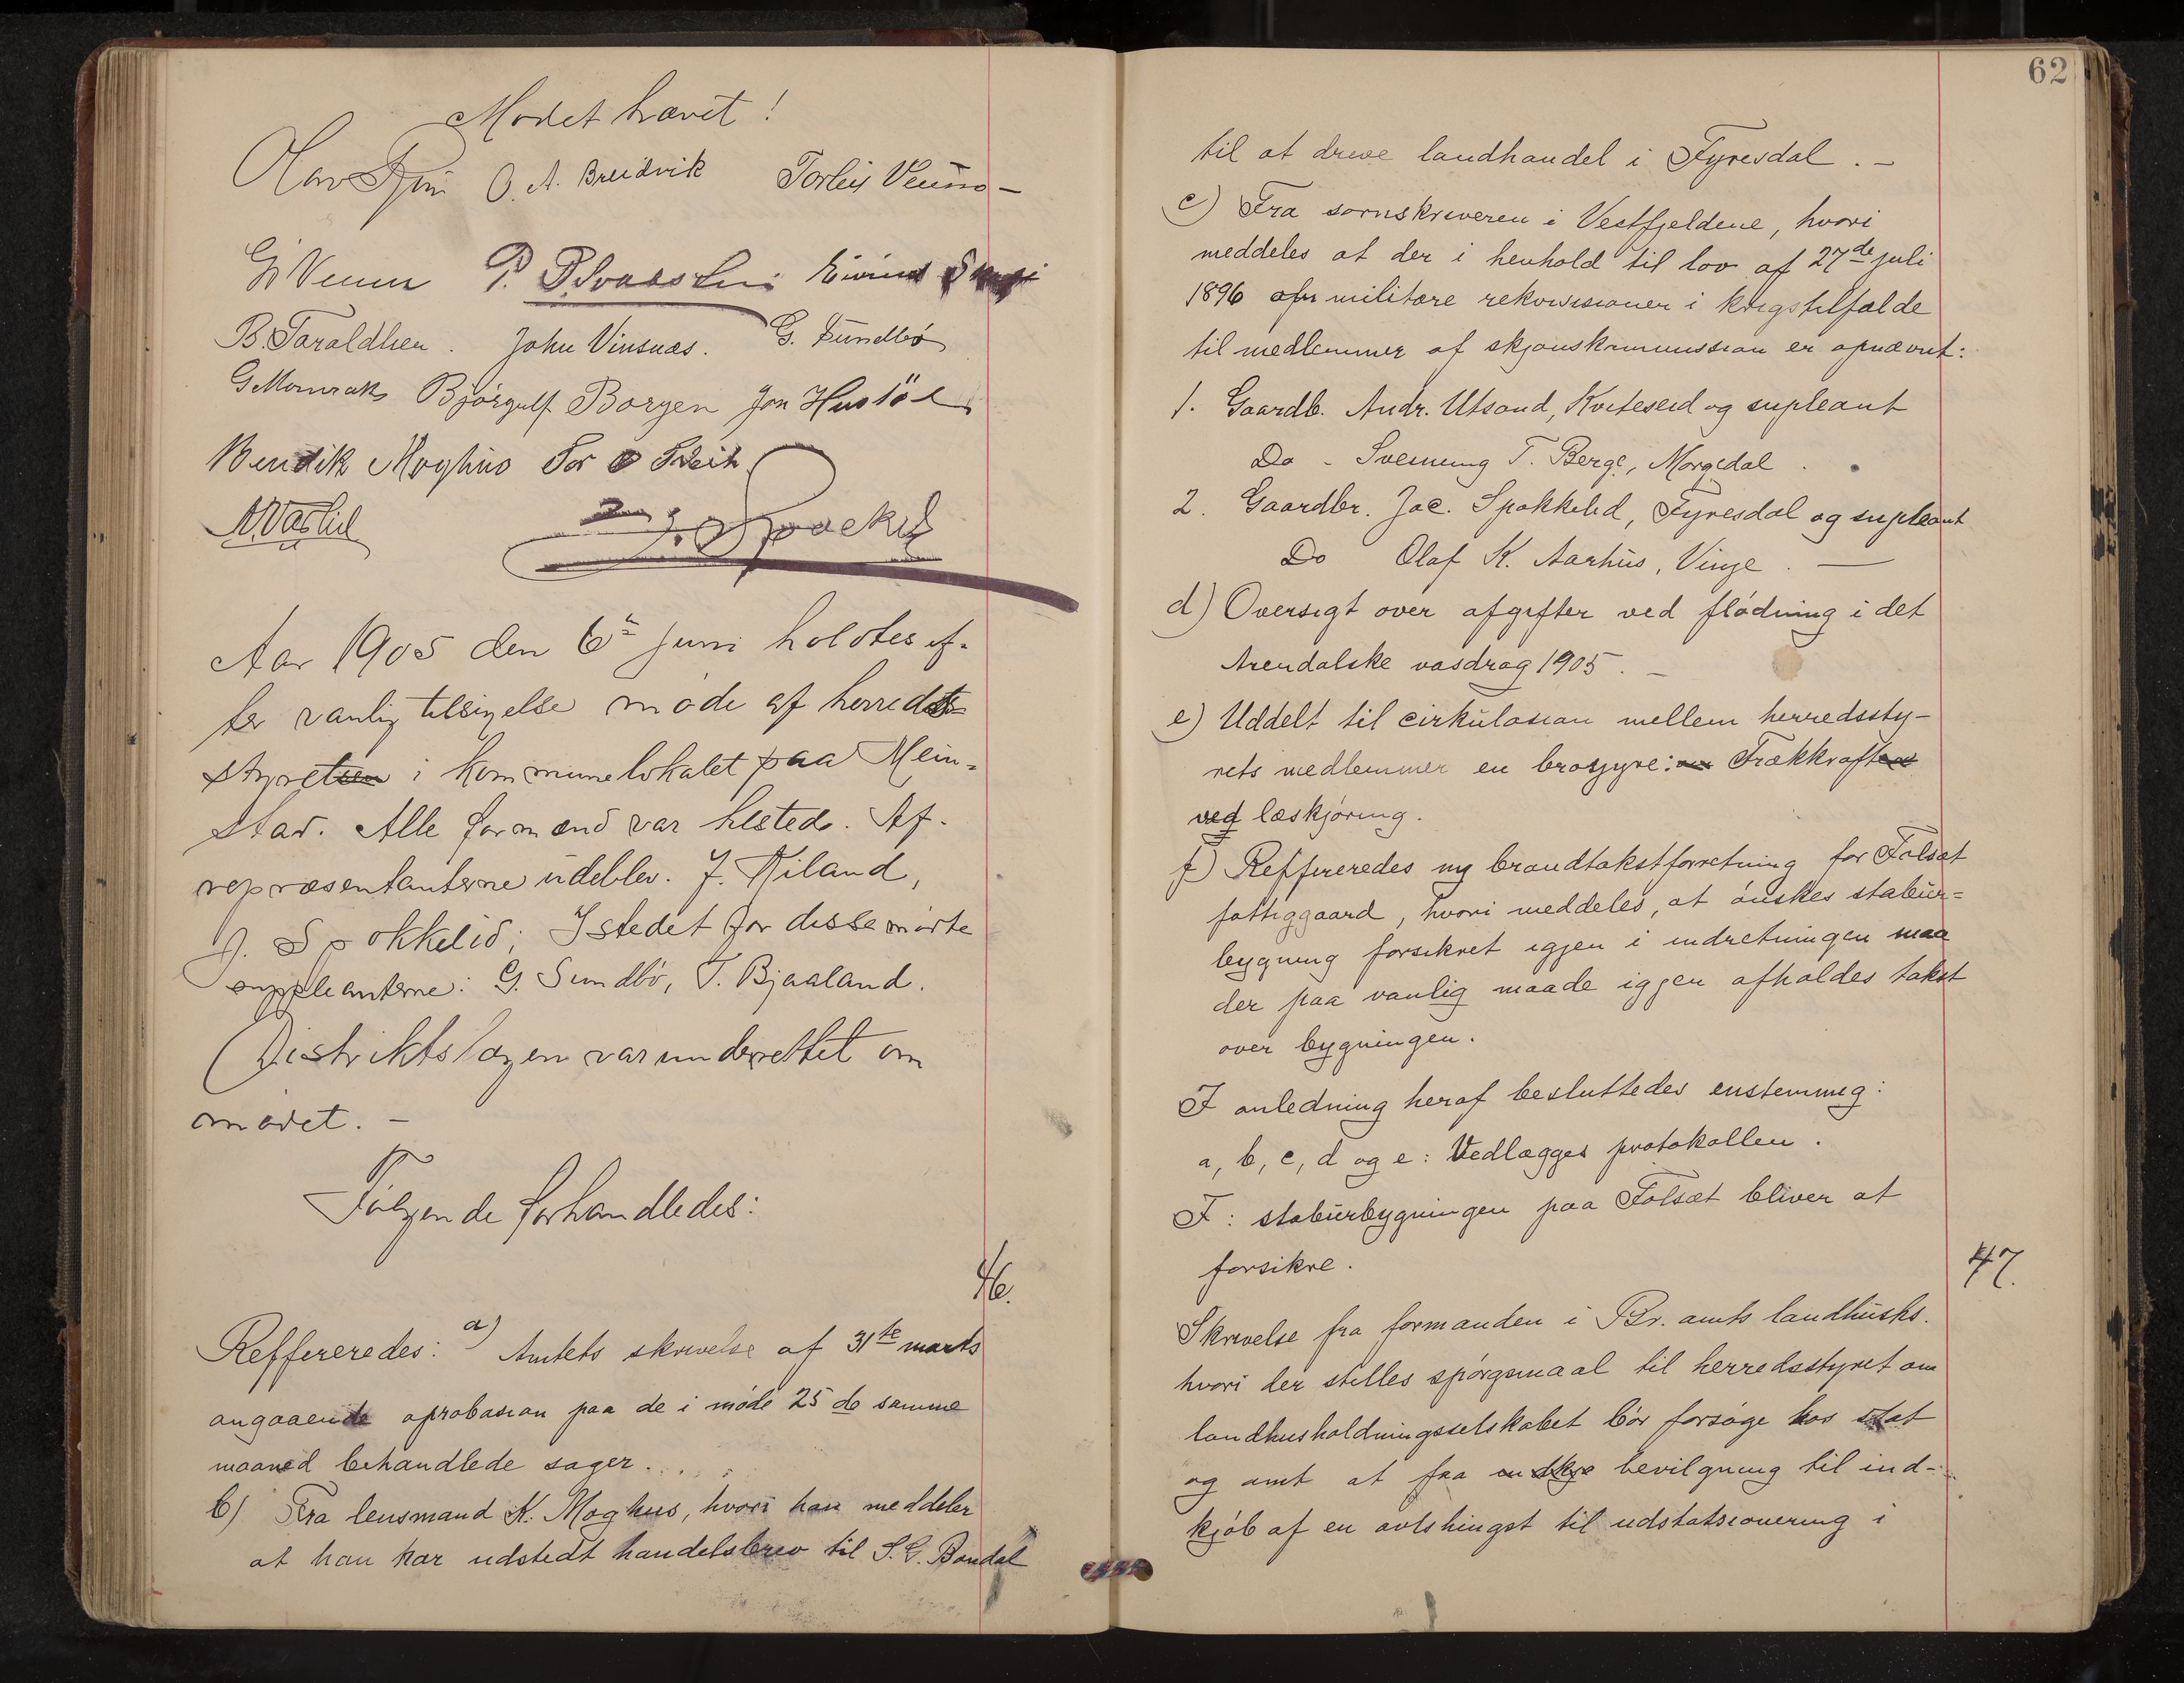 Mødet hævet!
O. A. Breidvik Torleif Veum
G. Veum P.
B. Taraldlien. John Vinsnæs. G. Sundbö
G Momrak Bjørgulf Borgen Jon Hustöl
Bendik Moghus Tor
Aar 1905 den 6te juni holdtes ef-
ter vanlig tilsigelse møde af herreds-
styret i kommunelokalet paa Mein-
stad. Alle formænd var tilstede. Af
repræsentanterne udeblev. J. Kiland,
J. Spokkelid; Istedet for disse mødte
suppleanterne: G. Sundbö, T. Bjaaland.
Distriktslægen var underrettet om
mødet. –
Følgende forhandledes:
46.
Reffereredes: a) Amtets skrivelse af 31te marts
angaaende aprobasion paa de i møde 25de samme
maaned behandlede sager.
b) Fra lensmand K. Moghus, hvori han meddeler
at han har udstedt handelsbrev til S. G. Bondal
62
til at dreve landhandel i Fyresdal. –
c) Fra sornskriveren i Vestfjeldene, hvori
meddeles at der i henhold til lov af 27de juli
1896 om militære rekvisisioner i krigstilfælde
til medlemmer af skjønskommission er opnævnt:
1. Gaardb. Andr. Utsond, Kviteseid og supleant
Do - Sveinung T. Berge, Morgedal.
2. Gaardbr. Jac. Spokkelid, Fyresdal og supleant
Do Olaf K. Aarhus, Vinje. —
d) Oversigt over afgifter ved flødning i det
Arendalske vasdrag 1905. –
e) Uddelt til cirkulasion mellem herredssty-
rets medlemmer en brosjyre: Trækkraften
ved læskjøring.
f) Reffereredes ny brandtakstforretning for Folsæt
fattiggaard, hvori meddeles, at ønskes stabur=
bygning forsikret igjen i indretningen maa
der paa vanlig maade igjen afholdes takst
over bygningen.
I anledning heraf besluttedes enstemmig:
a, b, c, d og e: Vedlægges protokollen.
F: stabursbygningen paa Folsæt bliver at
forsikre.
47.
Skrivelse fra formanden i Br. amts landhusks.
hvori der stilles spørgsmaal til herredsstyret om
landhusholdningsselskabet bør forsøge hos stat
og amt at faa bevilgning til ind-
kjøb af en avlshingst til udstatsionering i